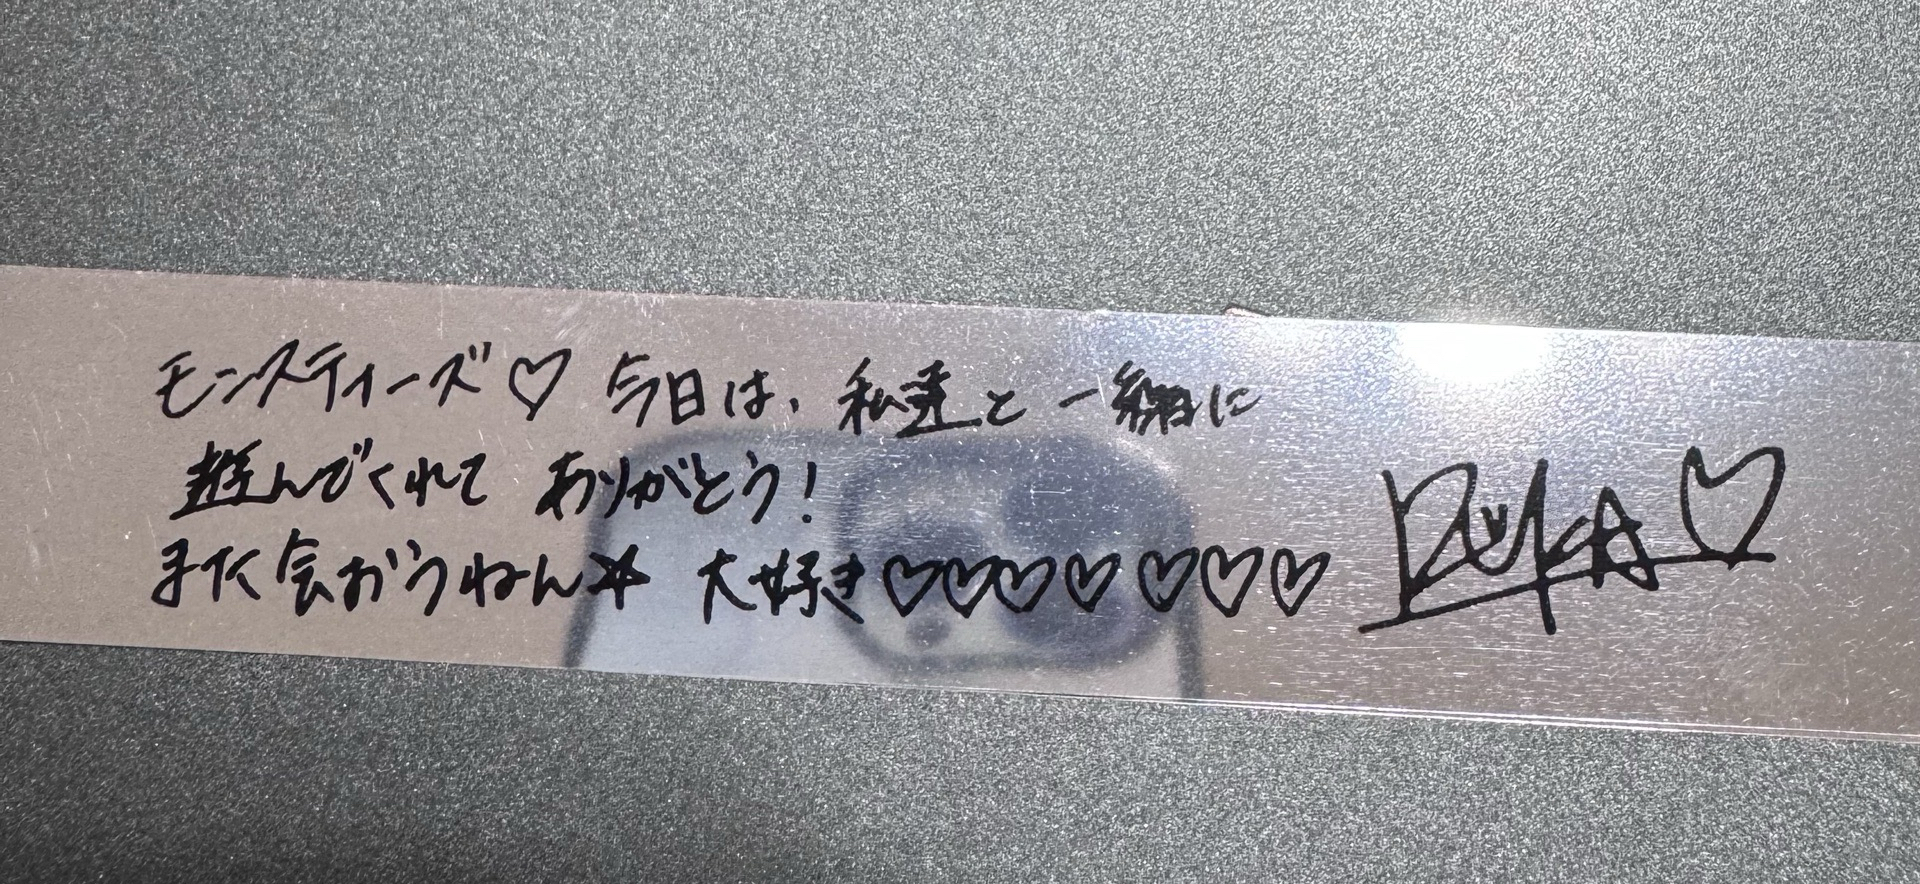 モンスティーズ♡ 今日は、私達と一緒に
遊んでくれて ありがとう!
また会おうねん☆ 大好き♡♡♡♡♡♡♡
RUKA♡